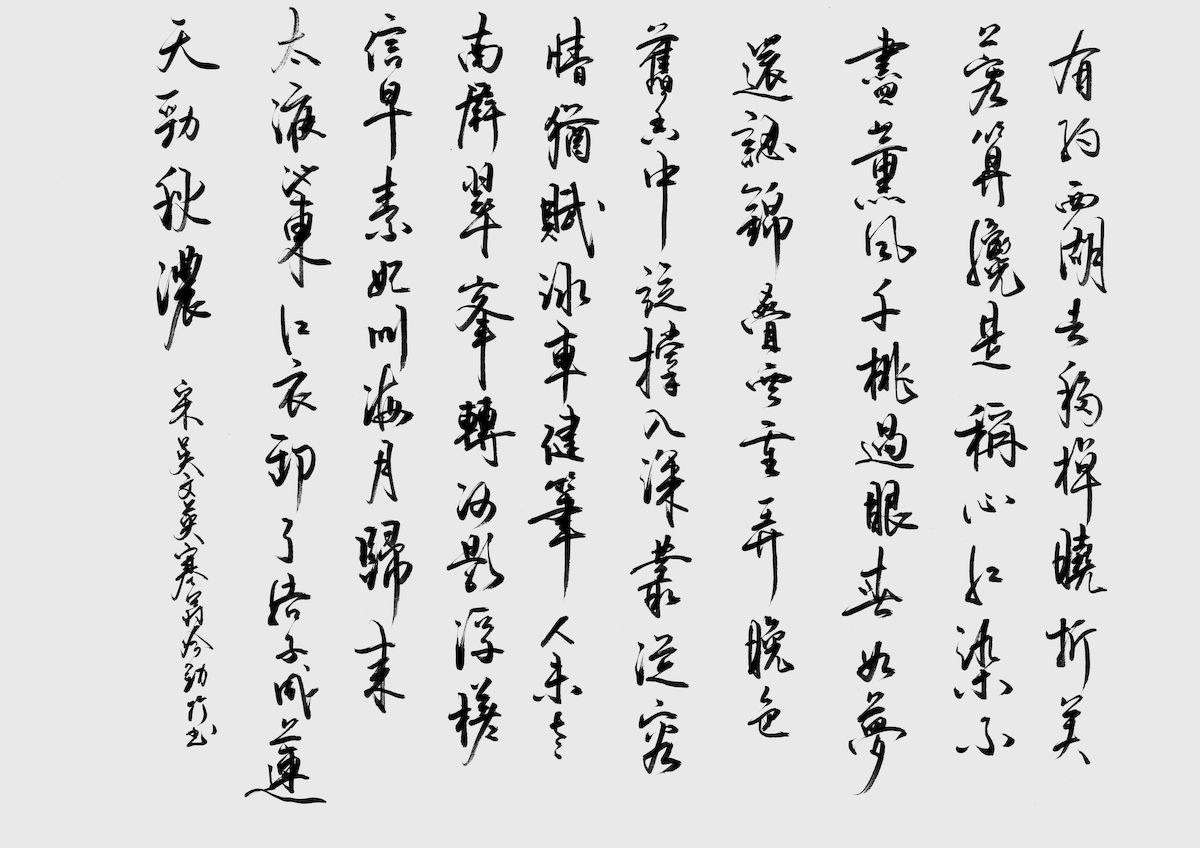 有約西湖去移棹曉折芙
蓉算纔是稱心紅染不
盡薰風千桃過眼春如夢
還認錦疊雲重弄晚色
舊香中旋撐入深叢從容
情猶賦冰車健筆人未老
南屏翠峯轉河影浮槎
信早素妃叫海月歸來
太液池東紅衣卸了結子成蓮
天勁秋濃
宋吳文英塞翁吟勁书